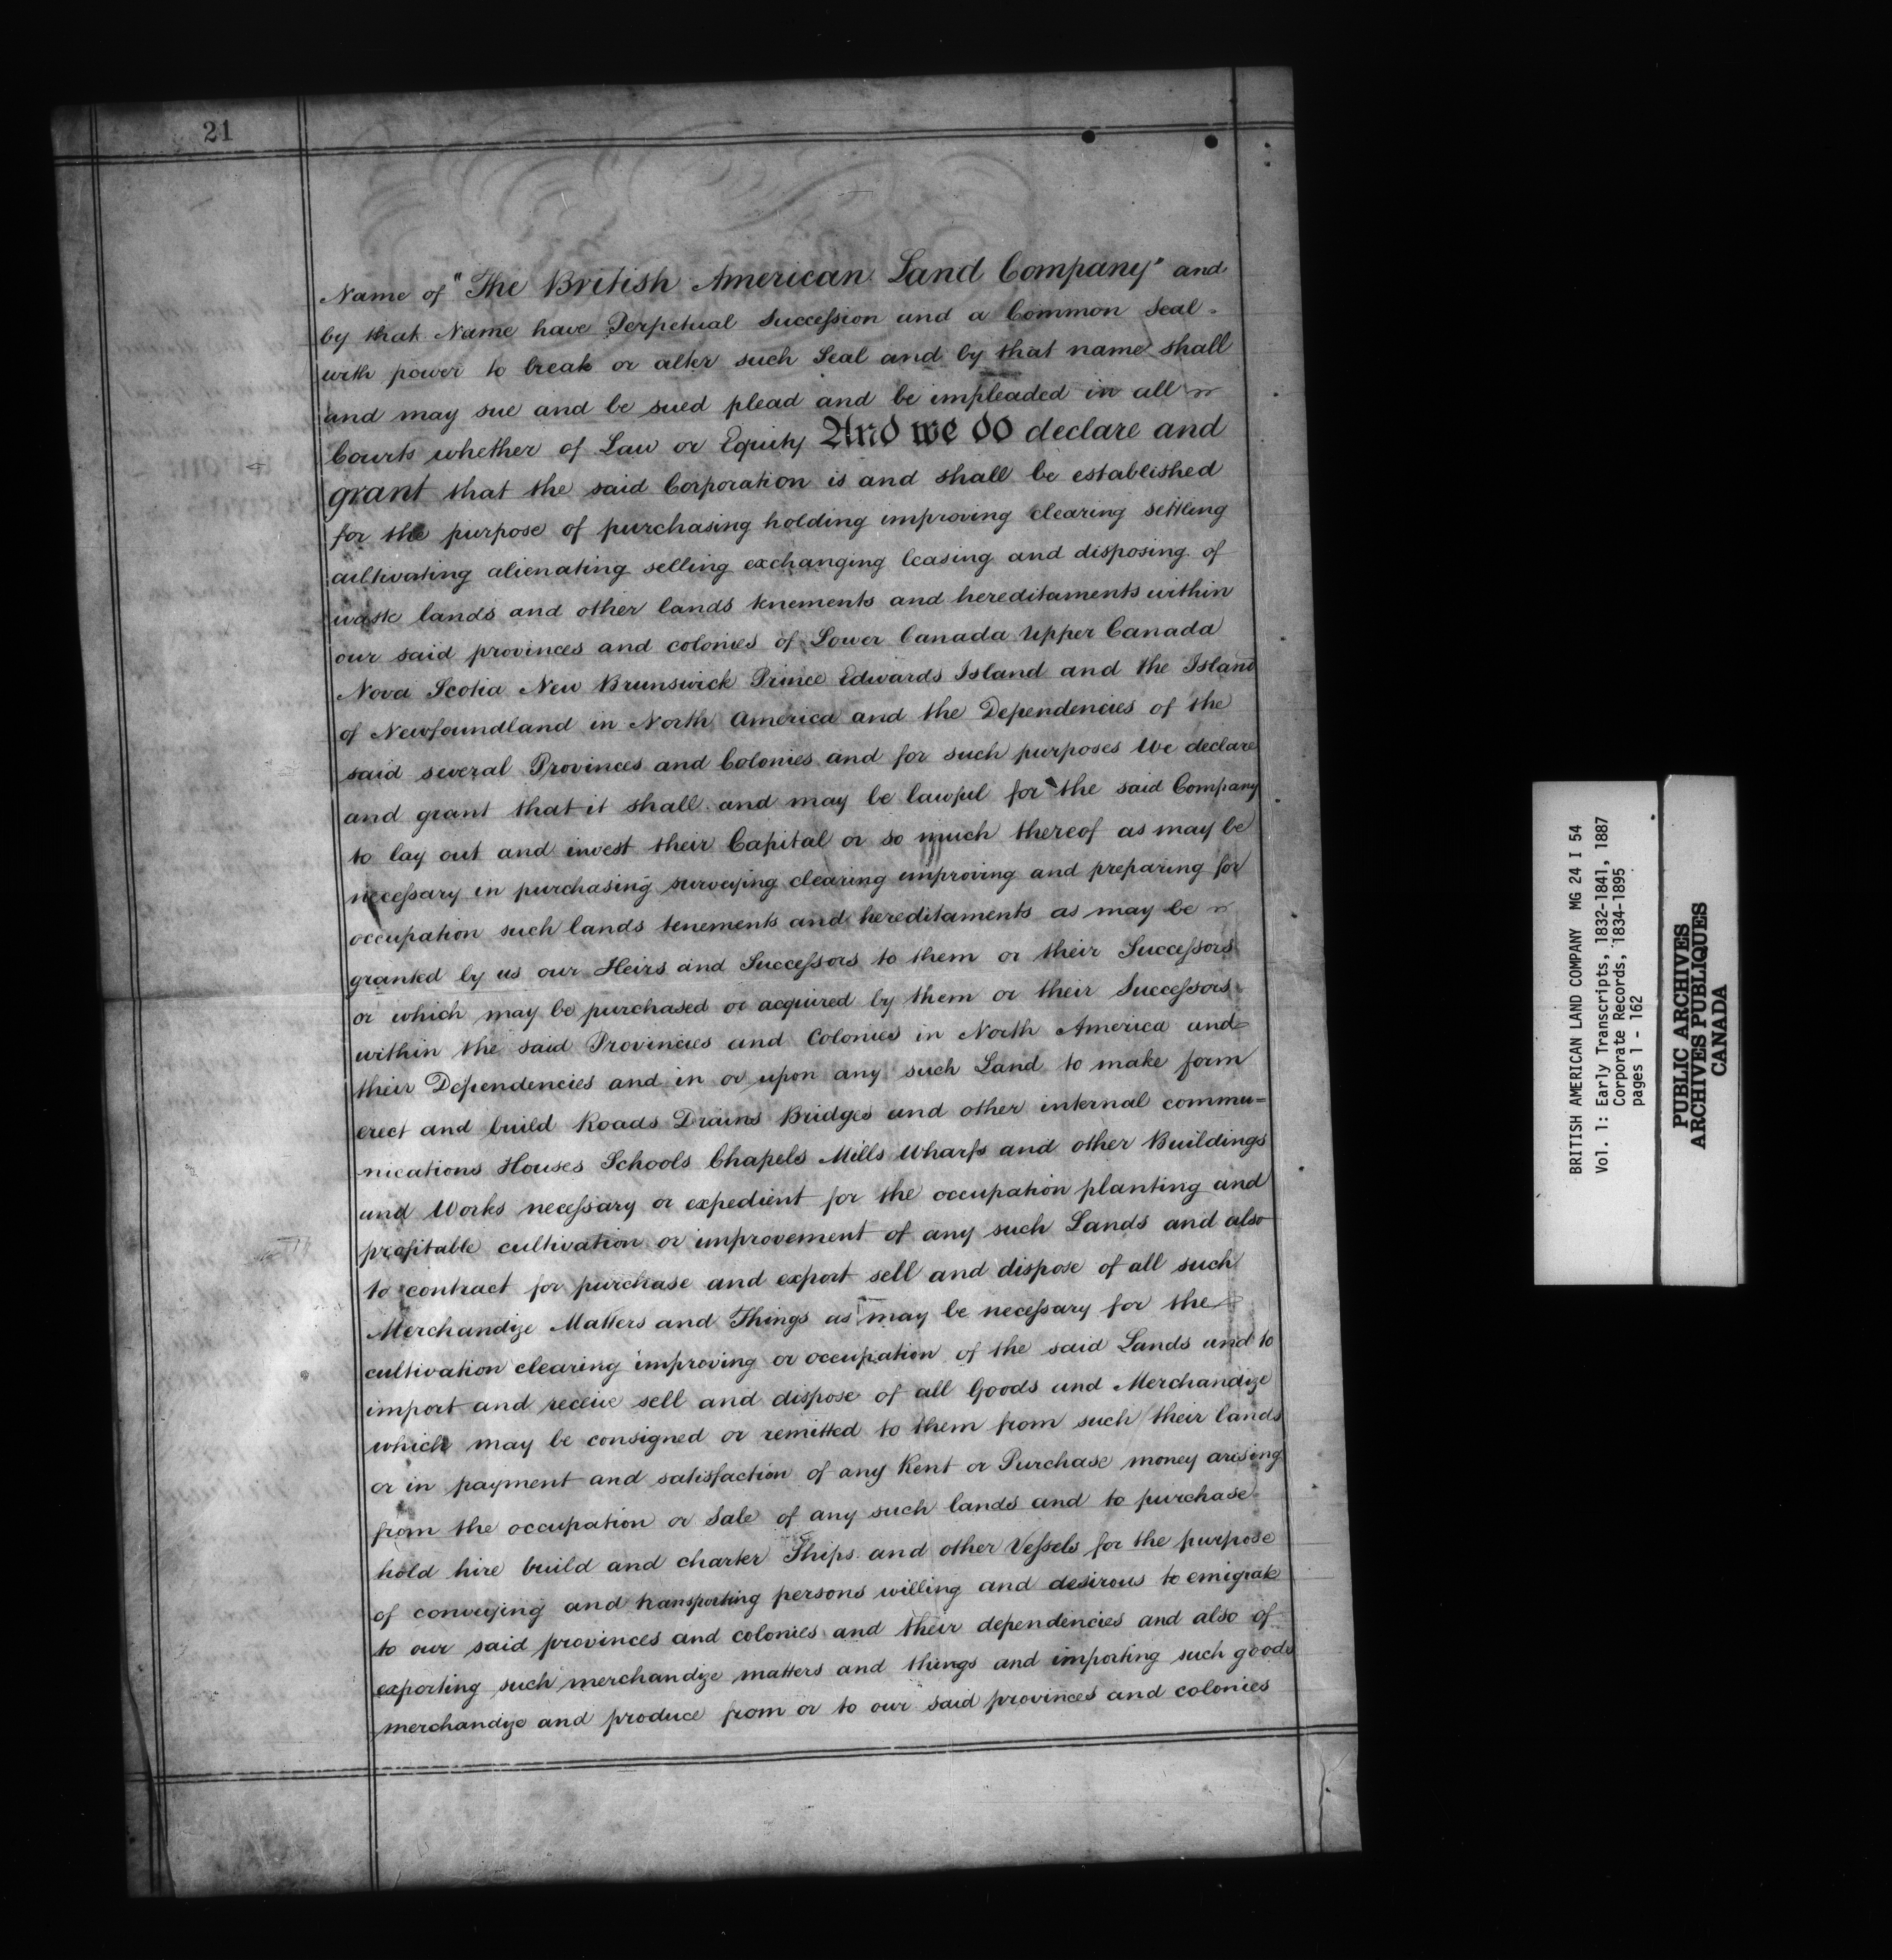 21
Name of "The British American Land Company" and
by that Name have Perpetual Succession and a Common Seal
with power to break or alter such Seal and by that name shall
and may sue and be sued plead and be impleaded in all
Courts whether of Law or Equity And we do declare and
grant that the said Corporation is and shall be established
for the purpose of purchasing holding improving clearing settling
cultivating alienating selling exchanging leasing and disposing of
waste lands and other lands tenements and hereditaments within
our said provinces and colonies of Lower Canada Upper Canada
Nova Scotia New Brunswick Prince Edwards Island and the Island
of Newfoundland in North America and the Dependencies of the
said several Provinces and Colonies and for such purposes We declare
and grant that it shall and may be lawful for the said Company
to lay out and invest their Capital or so much thereof as may be
necessary in purchasing surveying clearing improving and preparing for
occupation such lands tenements and hereditaments as may be
granted by us our Heirs and Successors to them or their Successors
or which may be purchased or acquired by them or their Successors
within the said Provinces and Colonies in North America and
their Dependencies and in or upon any such Land to make form
erect and build Roads Drains Bridges and other internal commu=
nications Houses Schools Chapels Mills Wharfs and other Buildings
and Works necessary or expedient for the occupation planting and
profitable cultivation or improvement of any such Lands and also
to contract for purchase and export sell and dispose of all such
Merchandize Matters and Things as may be necessary for the
cultivation clearing improving or occupation of the said Lands and to
import and receive sell and dispose of all Goods and Merchandize
which may be consigned or remitted to them from such their lands
or in payment and satisfaction of any Rent or Purchase money arising
from the occupation or Sale of any such lands and to purchase
hold hire build and charter Ships and other Vessels for the purpose
of conveying and transporting persons willing and desirous to emigrate
to our said provinces and colonies and their dependencies and also of
exporting such merchandize matters and things and importing such goods
merchandize and produce from or to our said provinces and colonies
BRITISH AMERICAN LAND COMPANY MG 24 I 54
Vol. 1: Early Transcripts, 1832-1841, 1887
Corporate Records, 1834-1895
pages 1 - 162
PUBLIC ARCHIVES
ARCHIVES PUBLIQUES
CANADA